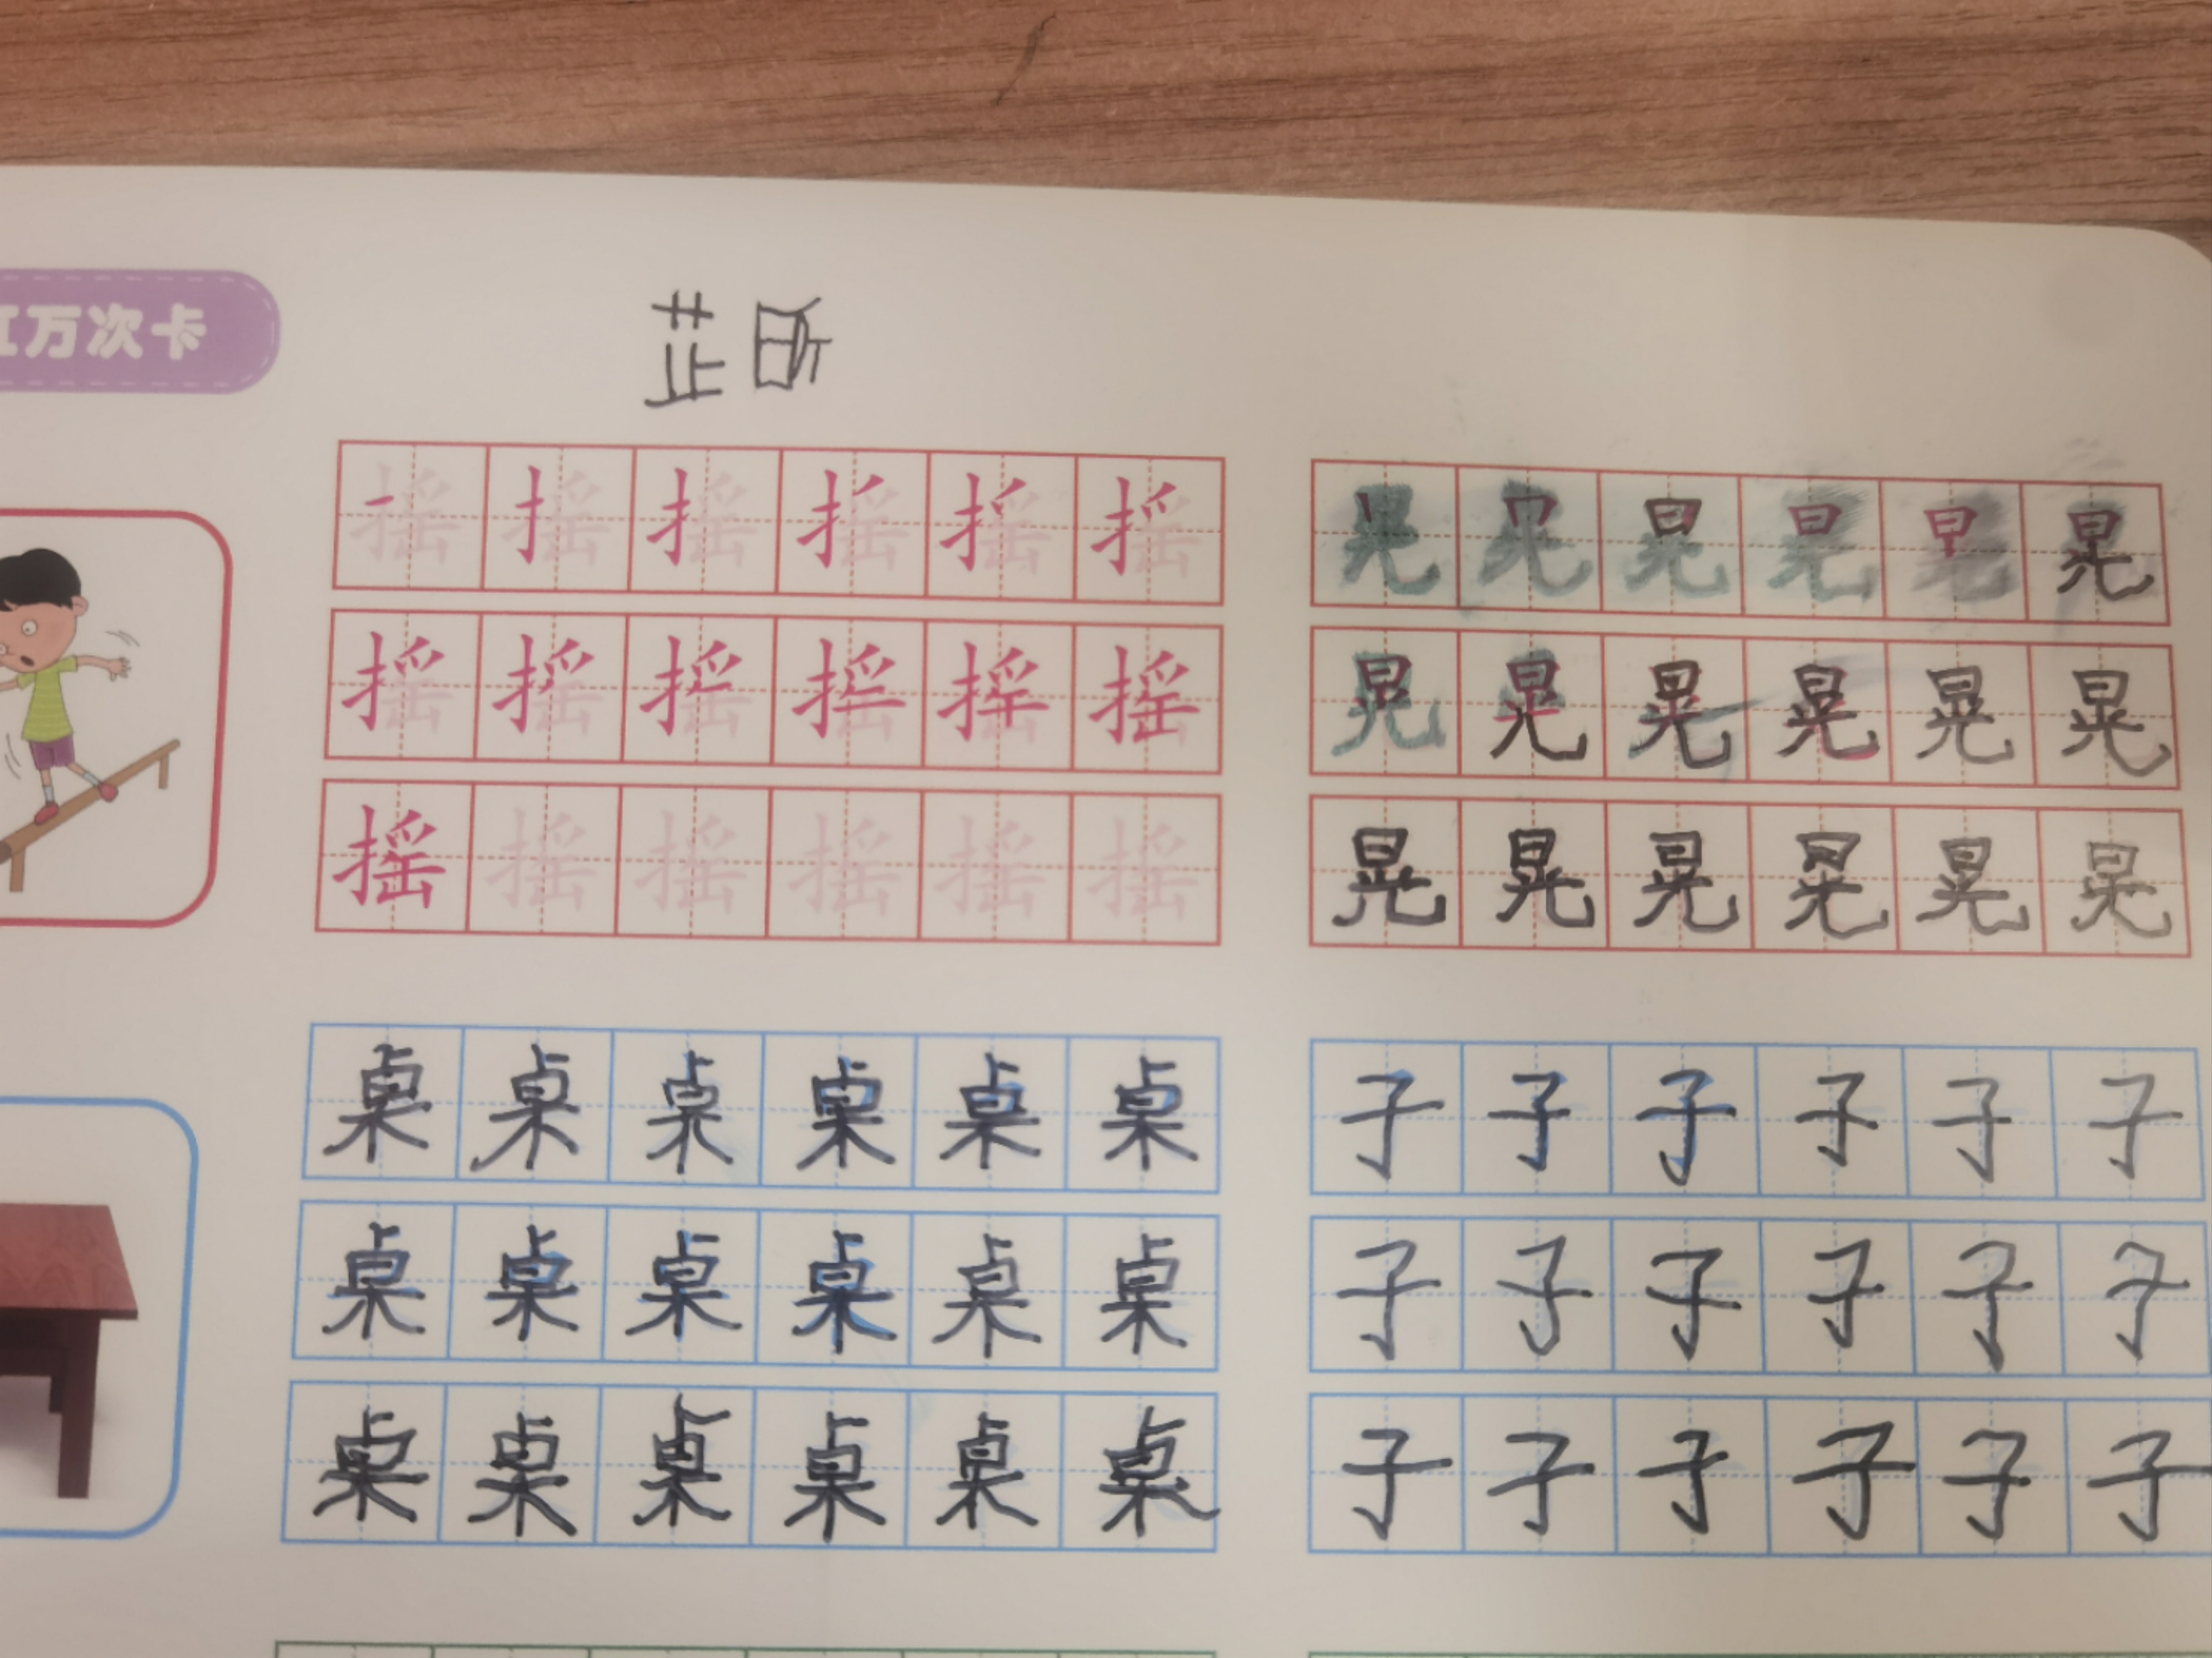 万次卡
摇 摇 摇 摇 摇 摇
摇 摇 摇 摇 摇 摇
摇 摇 摇 摇 摇 摇
晃 晃 晃 晃 晃 晃
晃 晃 晃 晃 晃 晃
晃 晃 晃 晃 晃 晃
桌 桌 桌 桌 桌 桌
桌 桌 桌 桌 桌 桌
桌 桌 桌 桌 桌 桌
子 子 子 子 子 子
子 子 子 子 子 子
子 子 子 子 子 子